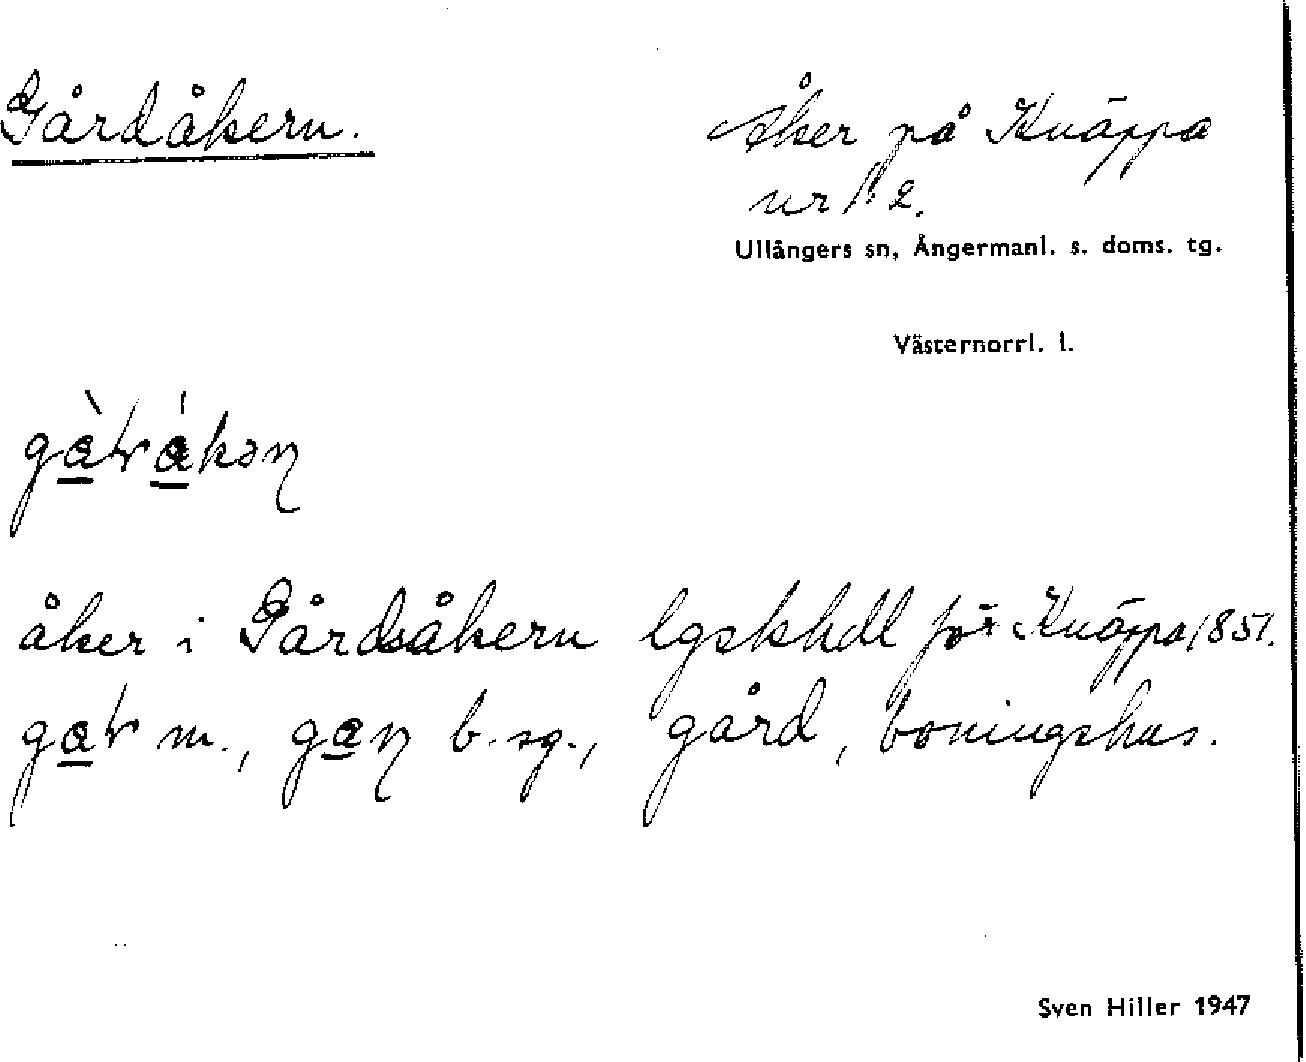 Gårdåkern.
Åker på Knäppa
nr 1:2.
Ullångers sn, Ångermanl. s. doms. tg.
Västernorrl. l.
åker i Gårdsåkern lgskhdl för Knäppa 1851.
m., b. sg., gård, boningshus.
Sven Hiller 1947